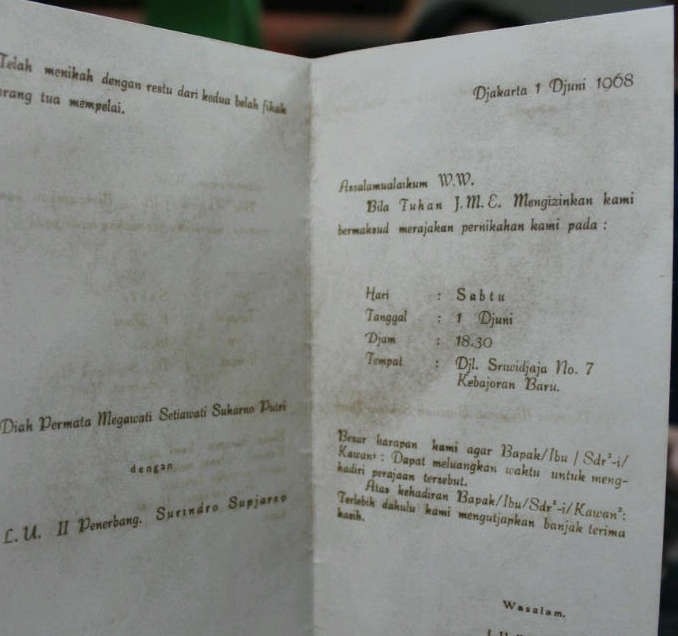 Telah menikah dengan restu dari kedua belah fihak
orang tua mempelai.
Diah Permata Megawati Setiawati Sukarno Putri
dengan
L.U. II Penerbang. Surindro Supjarso
Djakarta 1 Djuni 1968
Assalamualaikum W.W.
Bila Tuhan J.M.E. Mengizinkan kami
bermaksud merajakan pernikahan kami pada :
Hari : Sabtu
Tanggal : 1 Djuni
Djam : 18.30
Tempat : Djl. Sriwidjaja No. 7
Kebajoran Baru.
Besar harapan kami agar Bapak/Ibu / Sdr²-i/
Kawan² : Dapat meluangkan waktu untuk meng-
hadiri perajaan tersebut.
Atas kehadiran Bapak/Ibu/Sdr²-i/Kawan² :
Terlebih dahulu kami mengutjapkan banjak terima
kasih.
Wasalam,